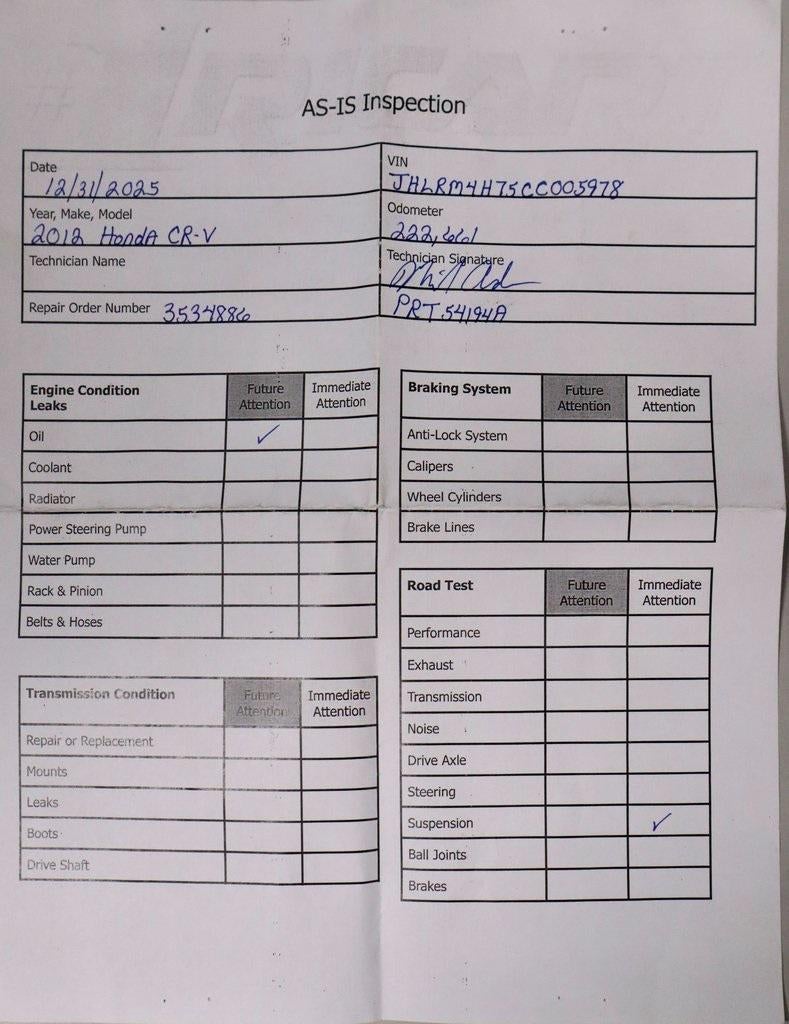 AS-IS Inspection
Date
12/31/2025
VIN
JHLRM4H75CC005978
Year, Make, Model
2012 HondA CR-V
Odometer
222,661
Technician Name
Technician Signature
Repair Order Number 3534886
PRT 54194A
Engine Condition Leaks
Future Attention
Immediate Attention
Oil ✓
Coolant
Radiator
Power Steering Pump
Water Pump
Rack & Pinion
Belts & Hoses
Transmission Condition
Future Attention
Immediate Attention
Repair or Replacement
Mounts
Leaks
Boots
Drive Shaft
Braking System
Future Attention
Immediate Attention
Anti-Lock System
Calipers
Wheel Cylinders
Brake Lines
Road Test
Future Attention
Immediate Attention
Performance
Exhaust
Transmission
Noise
Drive Axle
Steering
Suspension ✓
Ball Joints
Brakes